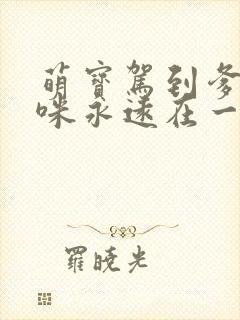 萌寶駕到爹
咪永遠在一
羅曉光